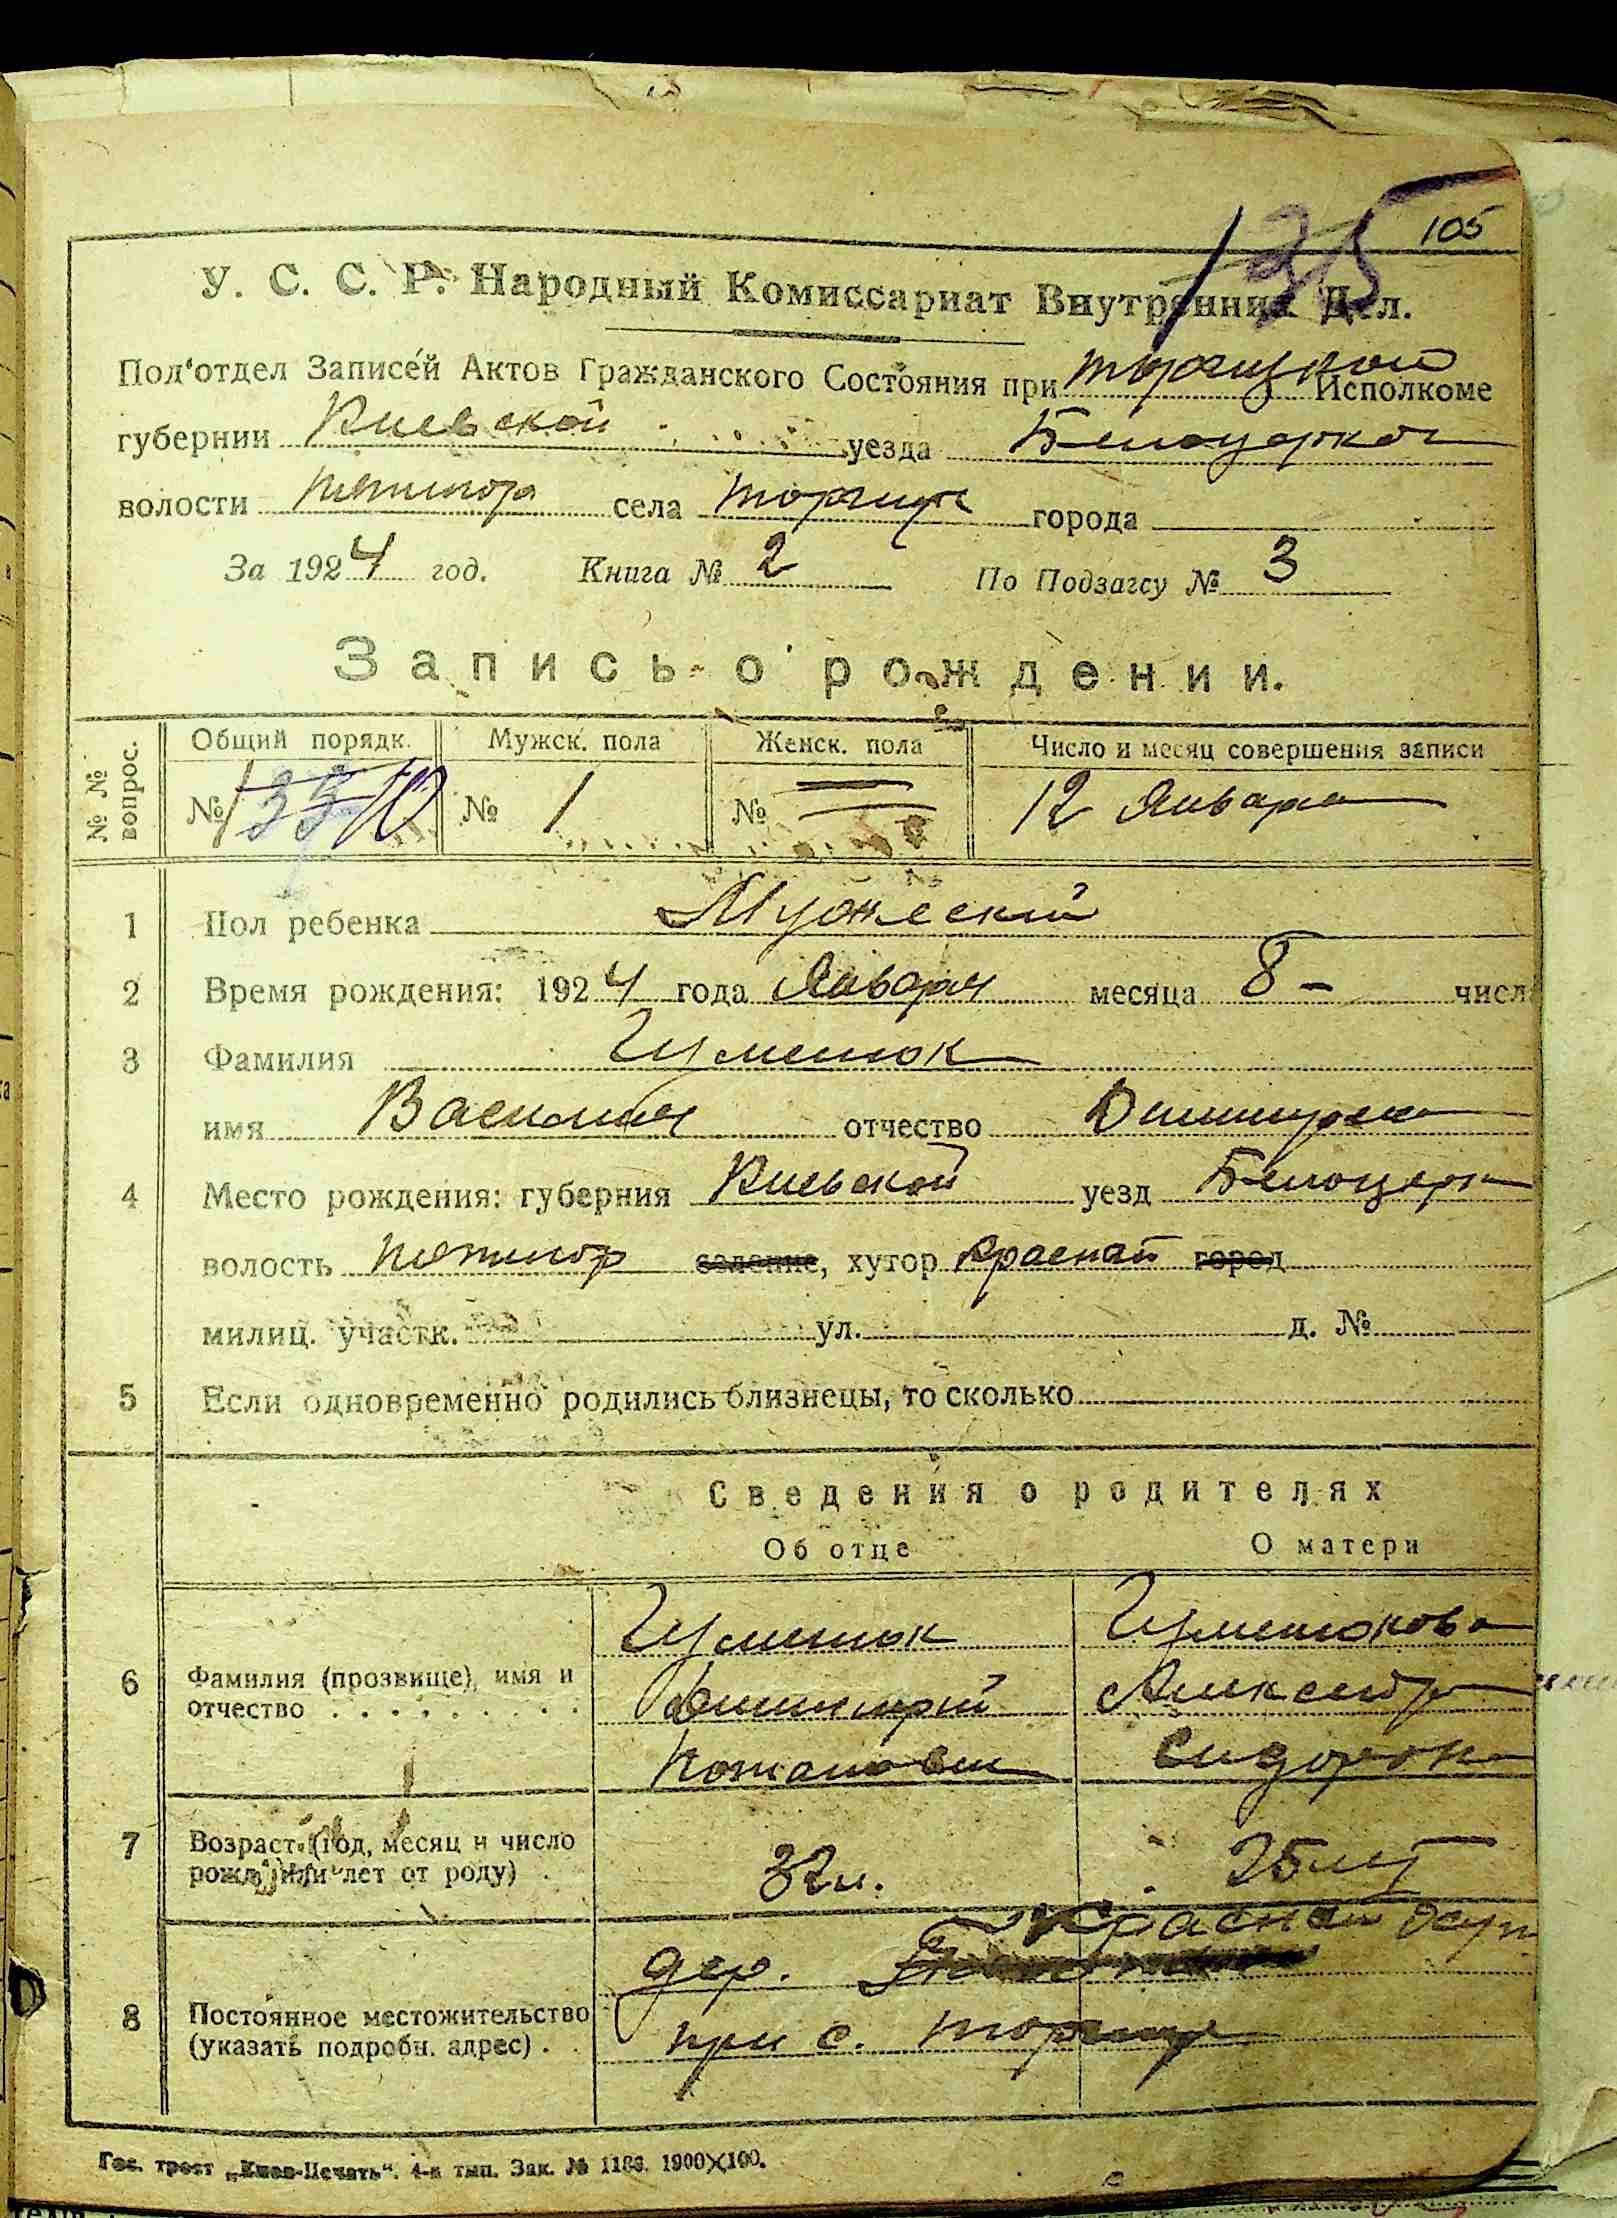 105
135
У. С. С. Р. Народный Комиссариат Внутренних Дел.
Под‘отдел Записей Актов Гражданского Состояния при Торчицкой Исполкоме
губернии Киевской уезда Белоцерков
волости Пятигор села Торчиця города
За 1924 год. Книга № 2 По Подзагсу № 3
Запись о рождении.
№ № вопрос. Общий порядк. Мужск. пола Женск. пола Число и месяц совершения записи
№ № 1 № 12 Января
1 Пол ребенка Мужеский
2 Время рождения: 1924 года Января месяца 8 числа
3 Фамилия Гуменюк
имя Василий отчество Дмитров
4 Место рождения: губерния Киевской уезд Белоцерк
волость Пятигор селение, хутор Красный город
милиц. участк. ул. д. №
5 Если одновременно родились близнецы, то сколько
Сведения о родителях
Об отце О матери
Гуменюк Гуменюкова
6 Фамилия (прозвище), имя и Димитрий Александра
отчество Потапович Сидоровна
7 Возраст (год, месяц и число
рожд. или лет от роду) 32л. 25 лет
Красный хут
дер.
8 Постоянное местожительство
(указать подробн. адрес) при с. Торчиця
Гос. трест „Киев-Печать“. 4-я тип. Зак. № 1186. 1900×100.